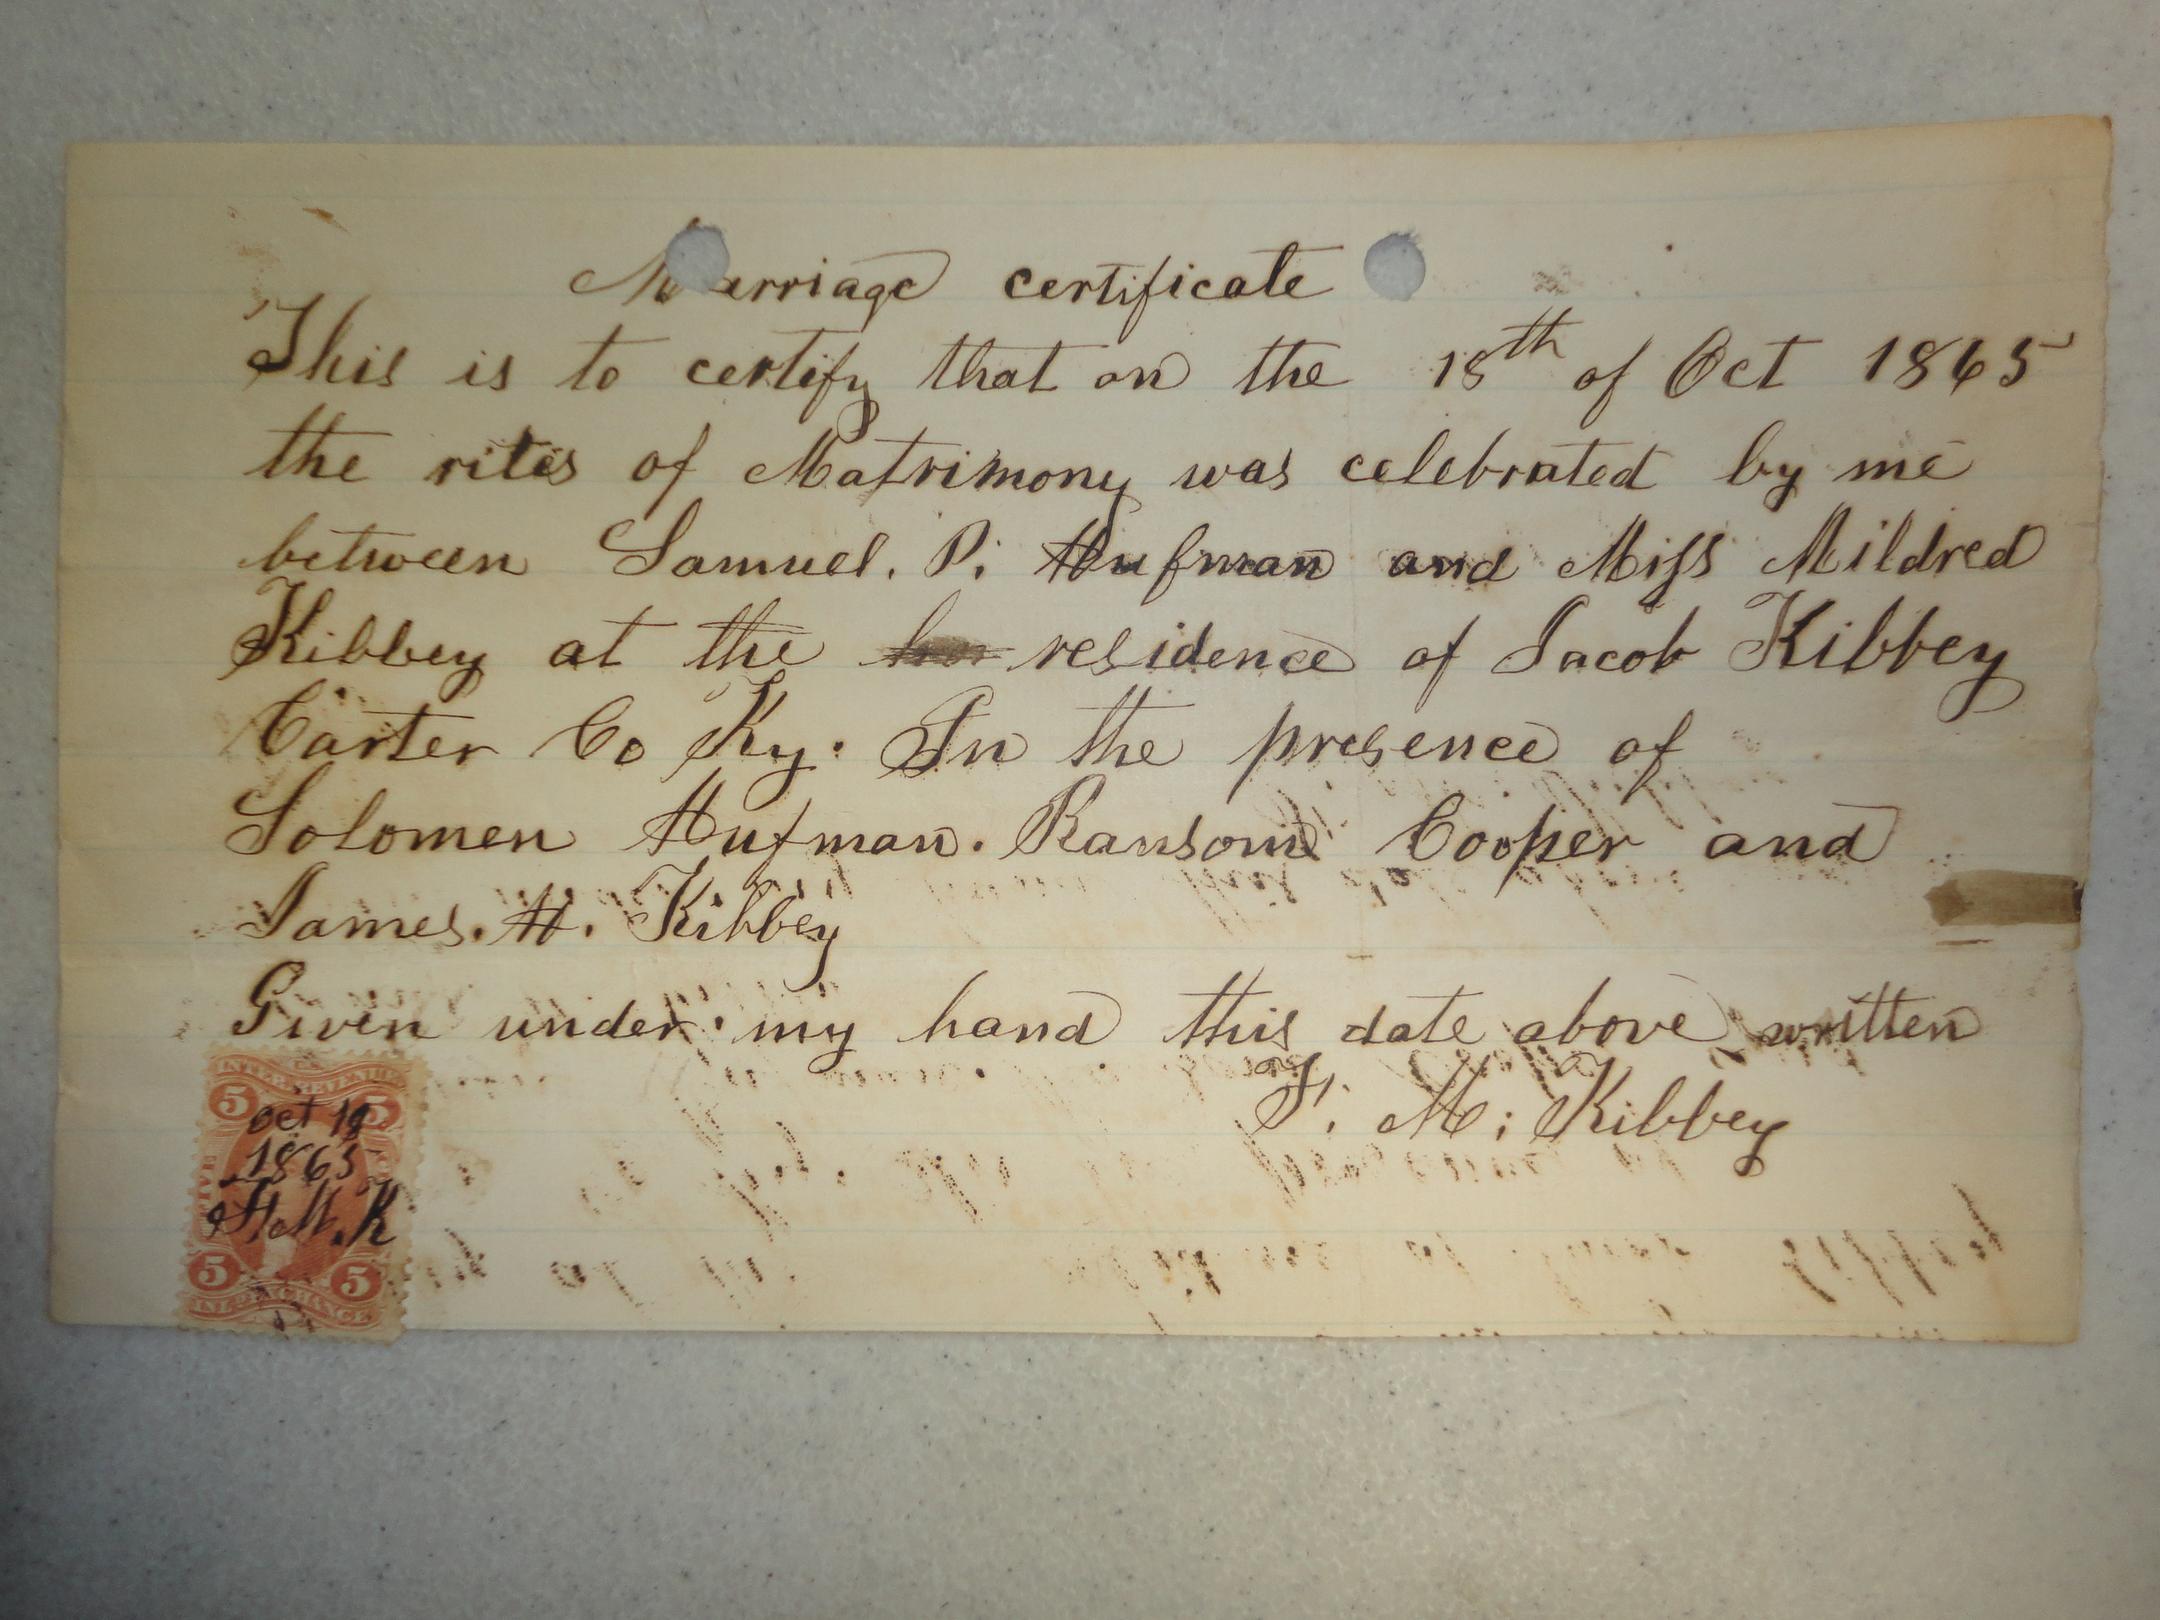 Marriage certificate
This is to certify that on the 18th of Oct 1865
the rites of Matrimony was celebrated by me
between Samuel. P. Hufman and Miss Mildred
Kibbey at the residence of Jacob Kibbey
Carter Co Ky. In the presence of
Solomen Hufman. Ransom Cooper and
James. H. Kibbey
Given under my hand this date above written
F. M. Kibbey
INTER. REVENUE
5 5
Oct 18
1865
FIVE
5 5
INL. EXCHANGE